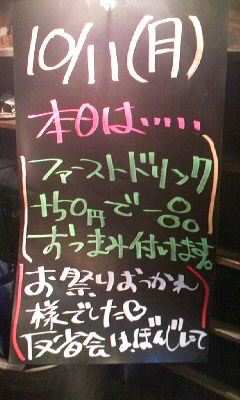 10/11(月)
本日は.....
ファーストドリンク
+50円で一品
おつまみ付けます。
お祭りおつかれ
様でした
反省会はぼんじいで